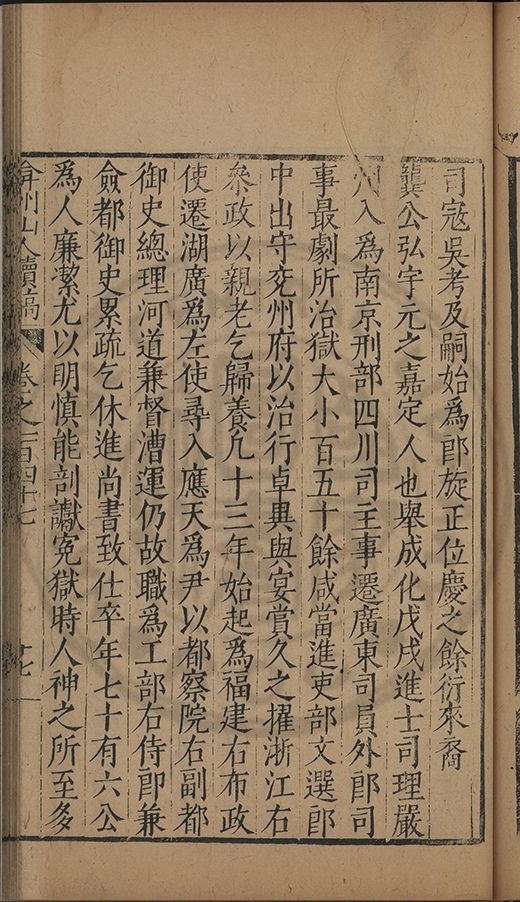 司寇吳考及嗣始爲郎旋正位慶之餘衍來裔
龔公弘字元之嘉定人也舉成化戊戌進士司理嚴
州入爲南京刑部四川司主事遷廣東司員外郎司
事最劇所治獄大小百五十餘咸當進吏部文選郎
中出守兗州府以治行卓異與宴賞久之擢浙江右
叅政以親老乞歸養凢十三年始起爲福建右布政
使遷湖廣爲左使尋入應天爲尹以都察院右副都
御史總理河道兼督漕運仍故職爲工部右侍郎兼
僉都御史累疏乞休進尚書致仕卒年七十有六公
為人廉潔尤以明慎能剖讞冤獄時人神之所至多
弇州山人續稿 卷之一百四十七 十七